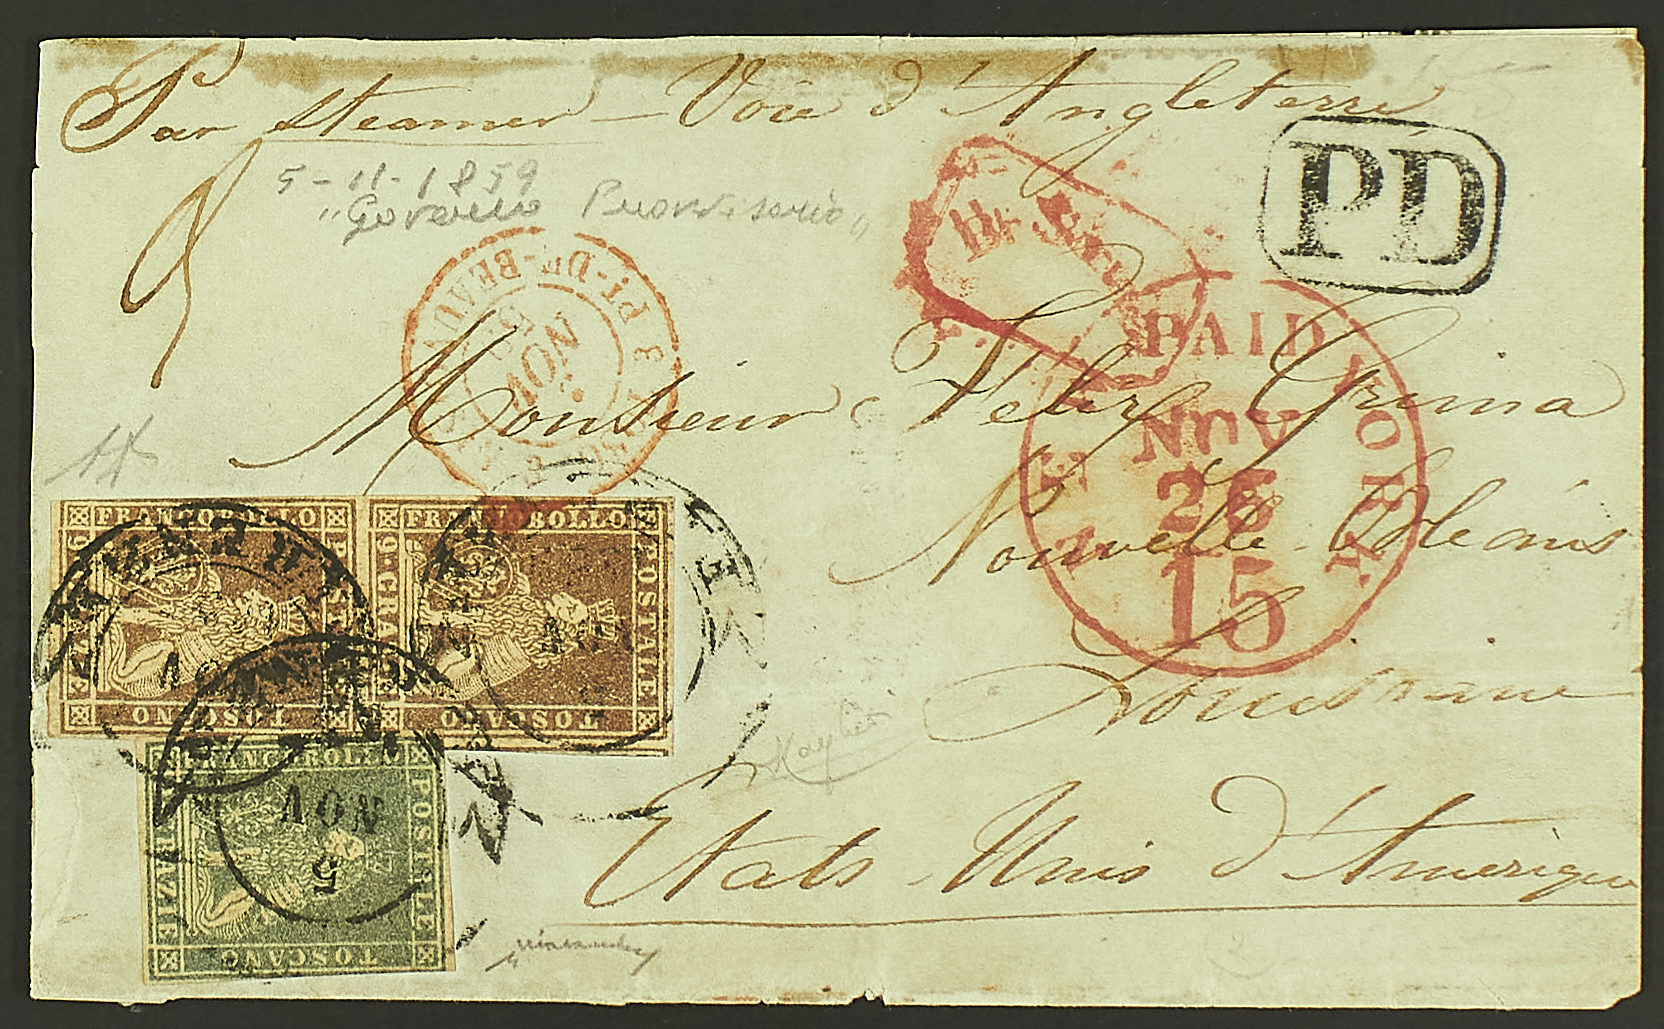 Par steamer – Voie d'Angleterre
PD
5-11-1859
"Governo Provvisorio"
Br. Ser
PI-DE-BEAU
NOV
59
PAID
NEW YORK
NOV
26
15
Monsieur Felix Grima
Nouvelle Orléans
Louisiane
Etats-Unis d'Amerique
FRANCOBOLLO
POSTALE
TOSCANO
FRANCOBOLLO
POSTALE
TOSCANO
9 CRAZIE
NOV
NOV
FRANCOBOLLO
POSTALE
TOSCANO
CRAZIE
NOV
5